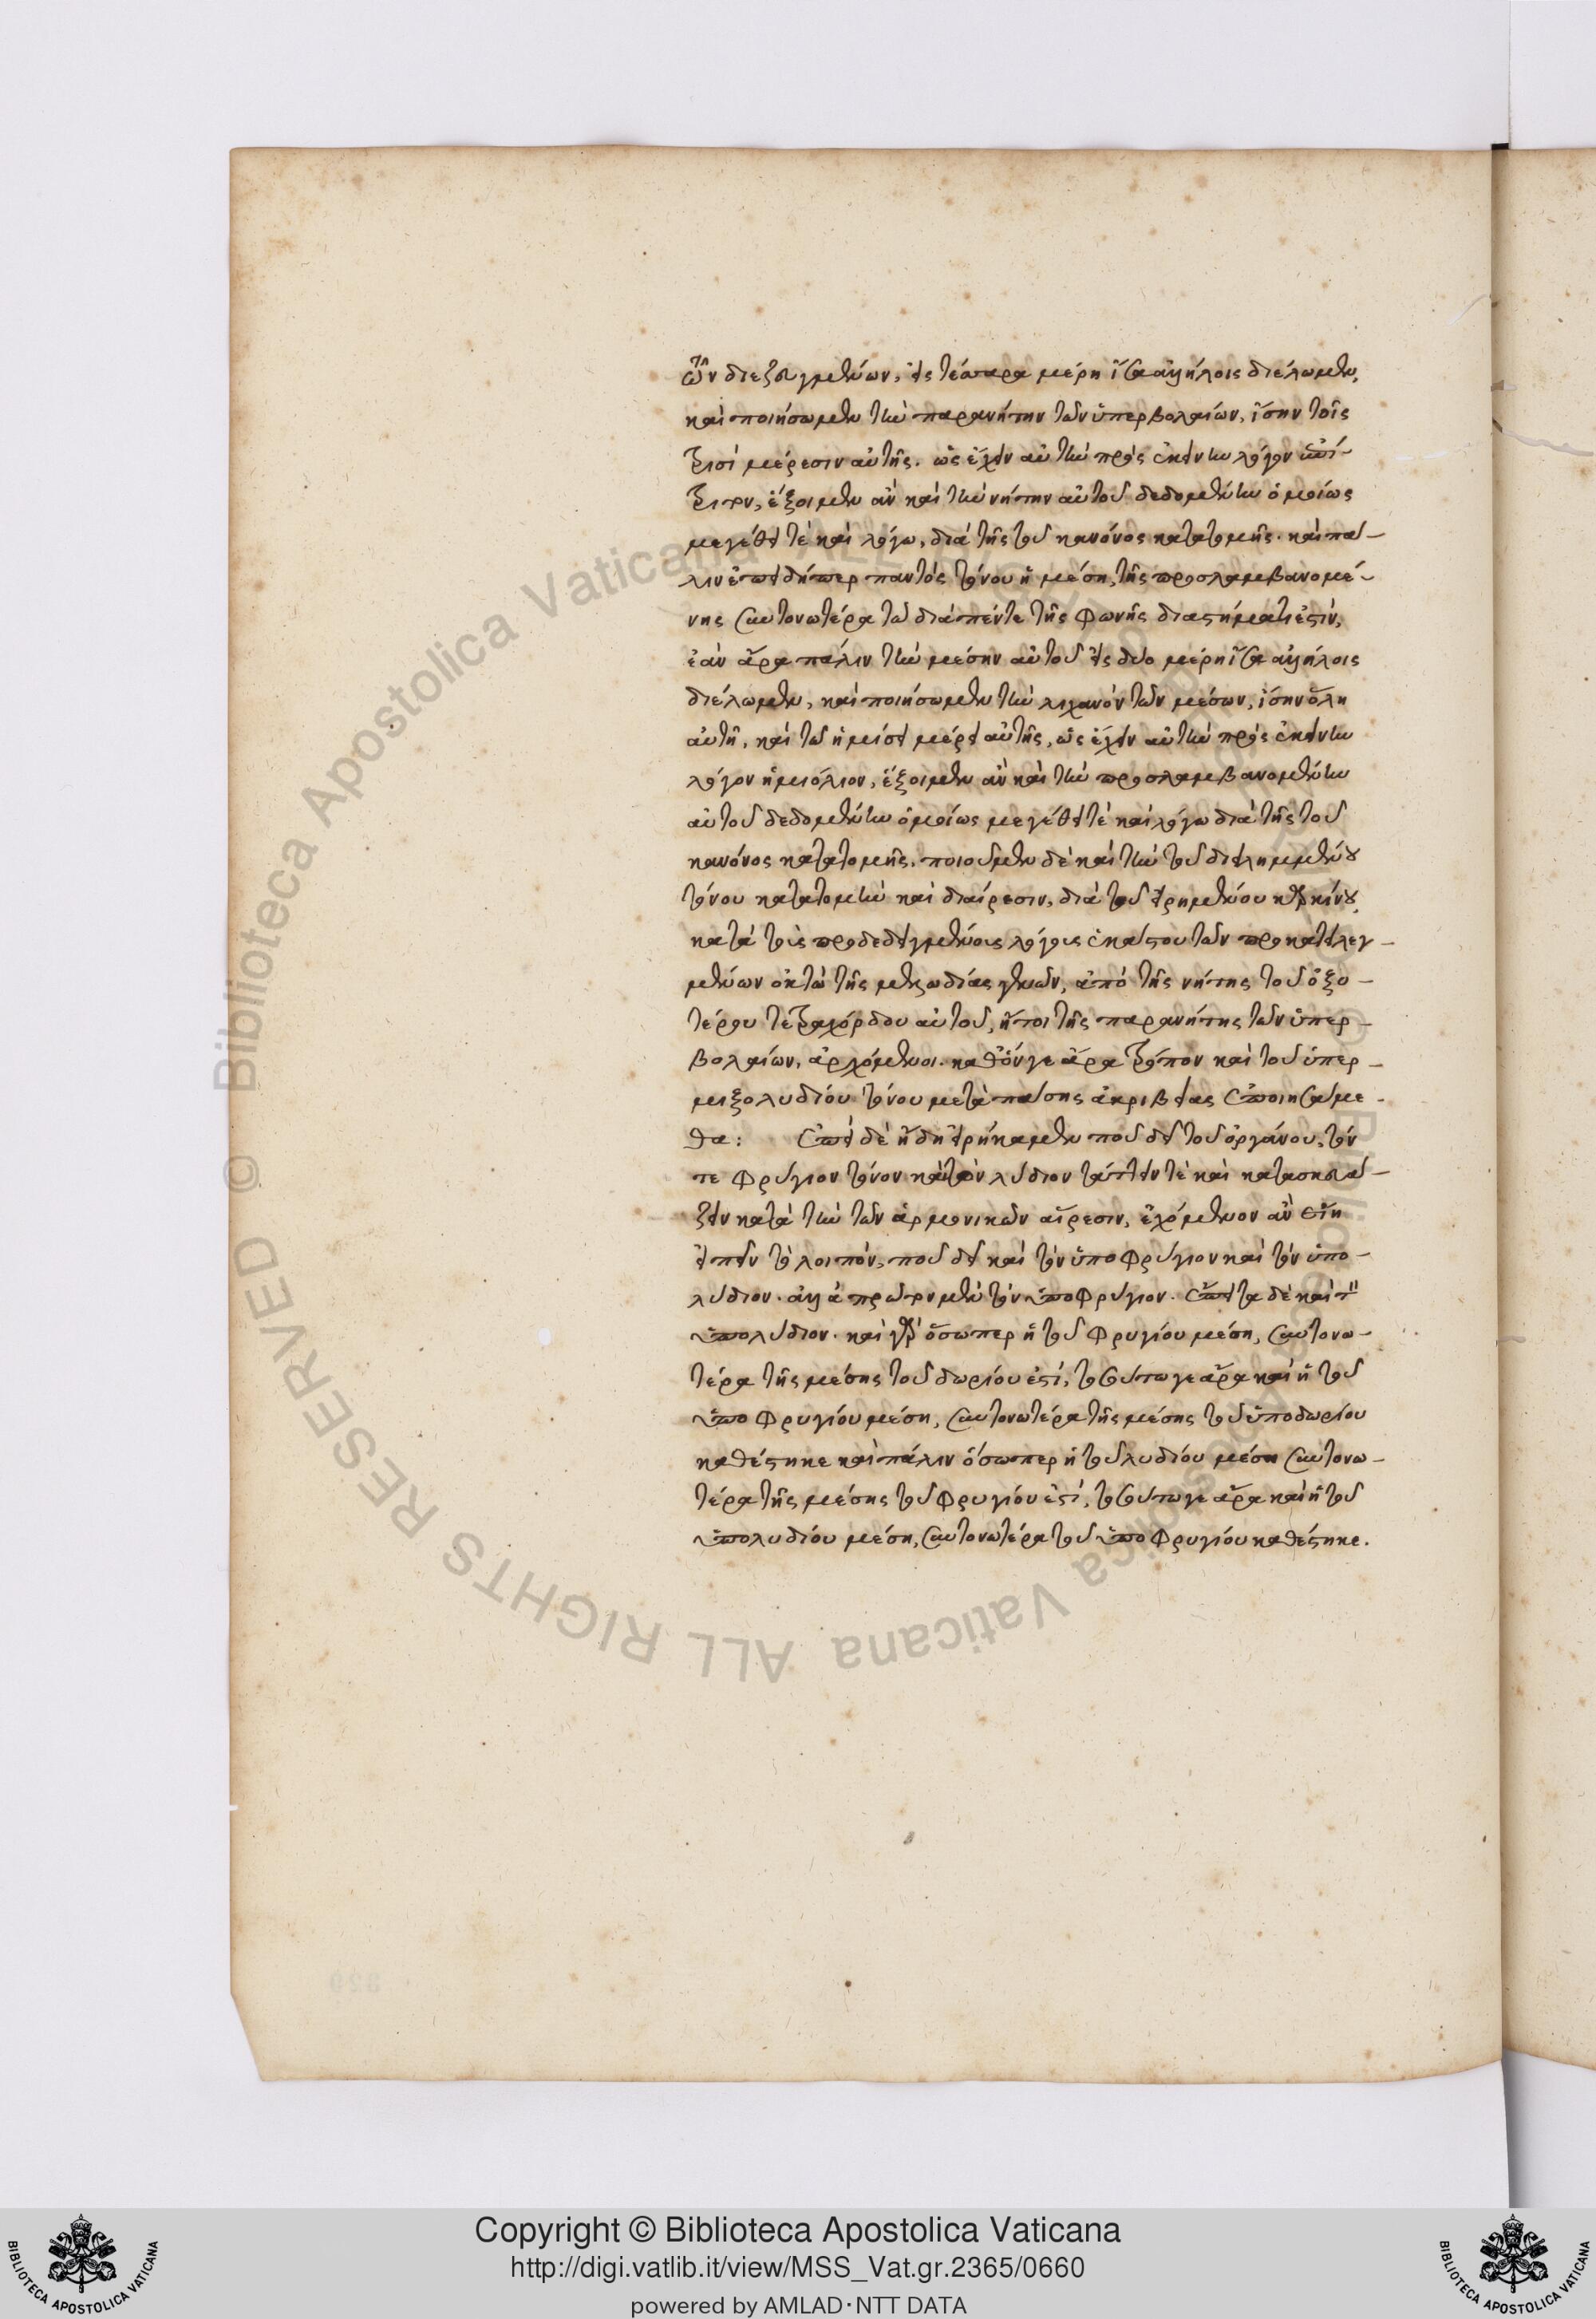 τῶν διεζευγμένων, εἰς τέσσαρα μέρη ἴσα ἀλλήλοις διέλωμεν,
καὶ ποιήσωμεν τὴν παρανήτην τῶν ὑπερβολαίων, ἴσην τοῖς
τρισὶ μέρεσιν αὐτῆς. ὡς ἔχειν αὐτὴν πρὸς ἐκείνην λόγον ἐπί-
τριτον, ἕξοιμεν ἂν καὶ τὴν νήτην αὐτοῦ δεδομένην ὁμοίως
μεγέθει τὲ καὶ λόγω, διὰ τῆς τοῦ κανόνος κατατομῆς. καὶ πά-
λιν ἐπειδήπερ παντὸς τόνου ἡ μέση, τῆς προσλαμβανομέ-
νης συντονωτέρα τῶ διὰ πέντε τῆς φωνῆς διαστήματι ἐστὶν,
ἐὰν ἄρα πάλιν τὴν μέσην αὐτοῦ εἰς δύο μέρη ἴσα ἀλλήλοις
διέλωμεν, καὶ ποιήσωμεν τὴν λιχανὸν τῶν μέσων, ἴσην ὅλη
αὐτῆ, καὶ τῶ ἡμίσει μέρει αὐτῆς, ὡς ἔχειν αὐτὴν πρὸς ἐκείνην
λόγον ἡμιόλιον, ἕξοιμεν ἂν καὶ τὴν προσλαμβανομένην
αὐτοῦ δεδομένην ὁμοίως μεγέθει τὲ καὶ λόγω διὰ τῆς τοῦ
κανόνος κατατομῆς. ποιοῦμεν δὲ καὶ τὴν τοῦ διειλημμένου
τόνου κατατομὴν καὶ διαίρεσιν, διὰ τοῦ εἰρημένου καρκίνου,
κατὰ τοὺς προδεδειγμένους λόγους ἑκάστου τῶν προκατειλεγ-
μένων ὀκτὼ τῆς μελωδίας γενῶν, ἀπὸ τῆς νήτης τοῦ ὀξυ-
τέρου τετραχόρδου αὐτοῦ, ἤτοι τῆς παρανήτης τῶν ὑπερ-
βολαίων, ἀρχόμενοι. καθόνγε ἄρα τρόπον καὶ τοῦ ὑπερ-
μιξολυδίου τόνου μετὰ πάσης ἀκριβείας ἐποιησάμε-
θα: Ἐπεὶ δὲ ἤδη εἰρήκαμεν ποῦ δεῖ τοῦ ὀργάνου, τόν
τε φρύγιον τόνον καὶ τὸν λύδιον τάττειν τὲ καὶ κατασκευά-
ζειν κατὰ τὴν τῶν ἁρμονικῶν αἵρεσιν, ἐχόμενον ἂν εἴη
εἰπεῖν τὸ λοιπόν, ποῦ δεῖ καὶ τὸν ὑποφρύγιον καὶ τὸν ὑπο-
λύδιον. ἀλλὰ πρῶτον μὲν τὸν ὑποφρύγιον. ἔπειτα δὲ καὶ τὸν
ὑπολύδιον. καὶ γὰρ ὅσωπερ ἡ τοῦ φρυγίου μέση, συντονω-
τέρα τῆς μέσης τοῦ δωρίου ἐστί, τοσούτω γε ἄρα καὶ ἡ τοῦ
ὑποφρυγίου μέση, συντονωτέρα τῆς μέσης τοῦ ὑποδωρίου
καθέστηκε καὶ πάλιν ὅσωπερ ἡ τοῦ λυδίου μέση συντονω-
τέρα τῆς μέσης τοῦ φρυγίου ἐστί, τοσούτω γε ἄρα καὶ ἡ τοῦ
ὑπολυδίου μέση, συντονωτέρα τοῦ ὑποφρυγίου καθέστηκε.
© Biblioteca Apostolica Vaticana ALL RIGHTS RESERVED
Copyright © Biblioteca Apostolica Vaticana
http://digi.vatlib.it/view/MSS_Vat.gr.2365/0660
powered by AMLAD·NTT DATA
BIBLIOTECA APOSTOLICA VATICANA
BIBLIOTECA APOSTOLICA VATICANA